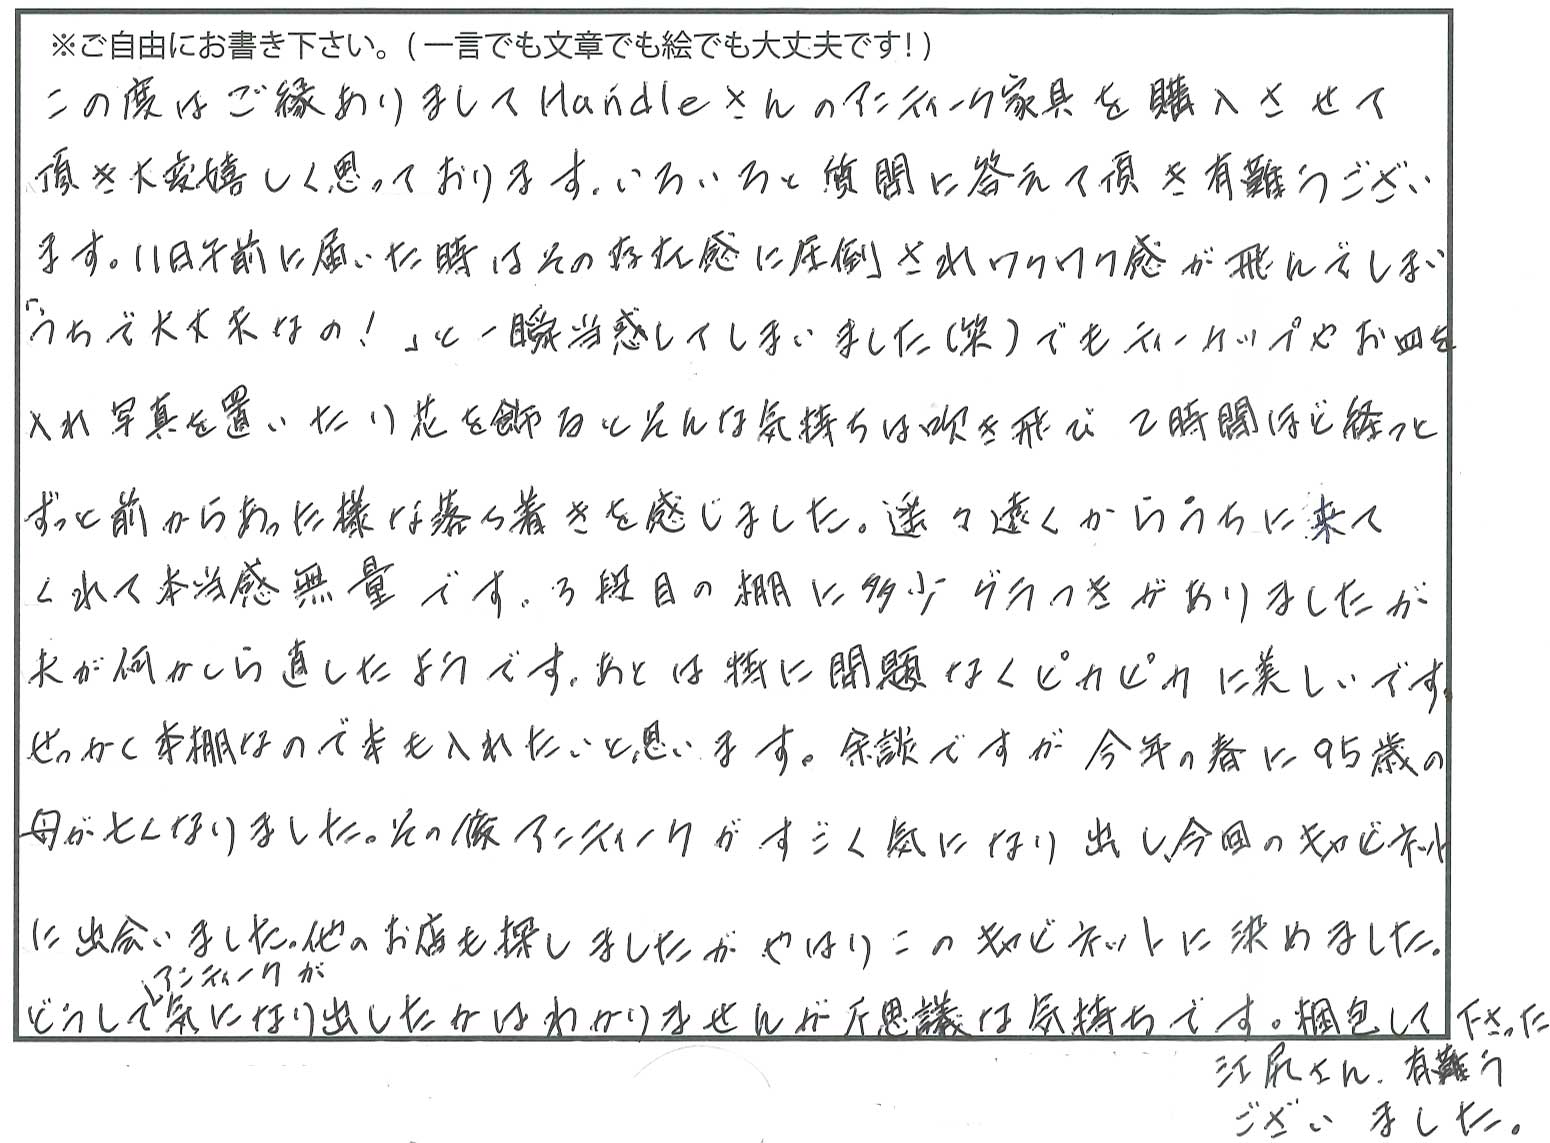 ※ご自由にお書き下さい。(一言でも文章でも絵でも大丈夫です!)
この度はご縁ありましてHandleさんのアンティーク家具を購入させて
頂き大変嬉しく思っております。いろいろと質問に答えて頂き有難うござい
ます。11日午前に届いた時はその存在感に圧倒されワクワク感が飛んでしまい
「うちで大丈夫なの!」と一瞬当惑してしまいました(笑)でもティーカップやお皿を
入れ写真を置いたり花を飾るとそんな気持ちは吹き飛び2時間ほど経つと
ずっと前からあった様な落ち着きを感じました。遥々遠くからうちに来て
くれて本当感無量です。3段目の棚に多少グラつきがありましたが
夫が何かしら直したようです。あとは特に問題なくピカピカに美しいです。
せっかく本棚なので本も入れたいと思います。余談ですが今年の春に95歳の
母が亡くなりました。その後アンティークがすごく気になり出し、今回のキャビネット
に出会いました。他のお店も探しましたがやはりこのキャビネットに決めました。
どうしてアンティークが気になり出したかはわかりませんが不思議な気持ちです。梱包して下さった
江尻さん、有難う
ございました。